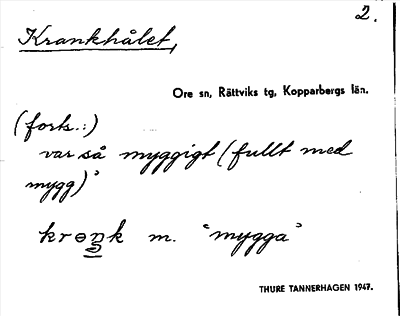 2.
Krankhålet,
Ore sn, Rättviks tg, Kopparbergs län.
(forts.:)
var så myggigt (fullt med
mygg)'
krɵŋk m. 'mygga'
THURE TANNERHAGEN 1947.